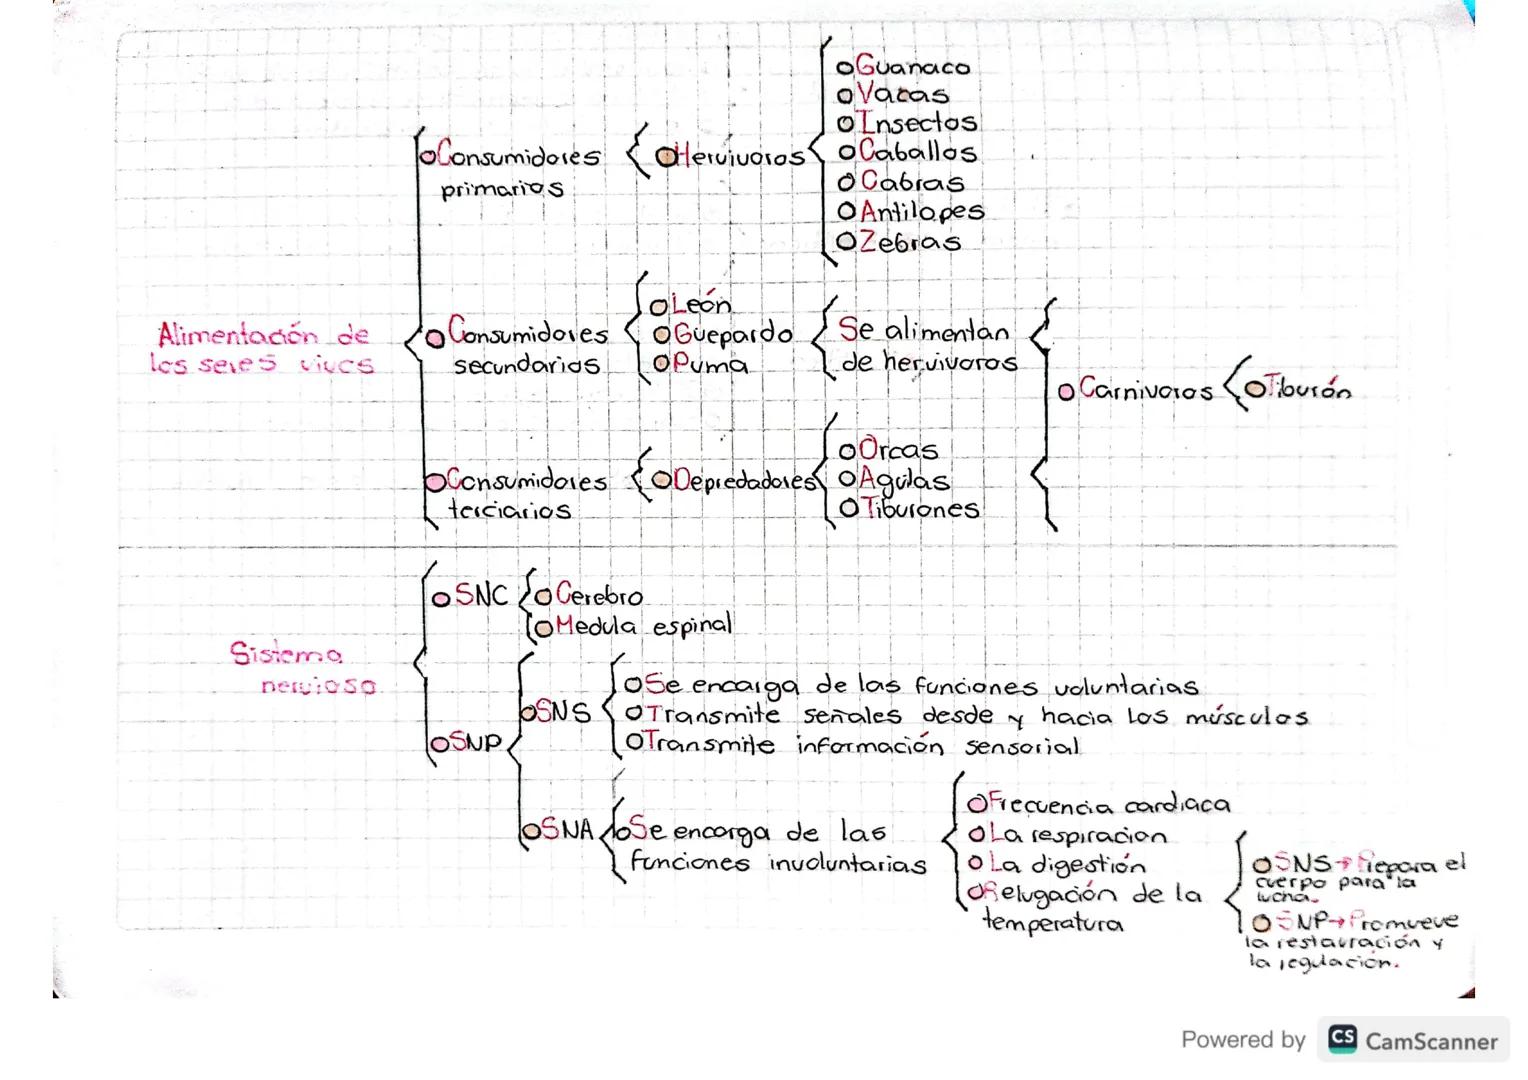 Guanaco
Vacas
Insectos
Consumidores
primarios
Hervivoros
Caballos
Cabras
Antilopes
Zebras
Alimentación de
los seres vivos
Consumidores
secundarios
León
Guepardo
Puma
Se alimentan
de hervivoros
Carnivoros
Tiburón
Consumidores
terciarios
Depredadores
Orcas
Agulas
Tiburones
Sistema
nervioso
SNC
Cerebro
Medula espinal
SNP
SNS
Se encarga de las funciones voluntarias
Transmite señales desde y hacia los músculos
Transmite información sensorial
SNA
Se encarga de las
funciones involuntarias
Frecuencia cardiaca
La respiracion
La digestión
Relugación de la
temperatura
SNS→Prepara el
cuerpo para la
lucha.
SNP→Promueve
la restauración y
la regulación.
Powered by CS CamScanner